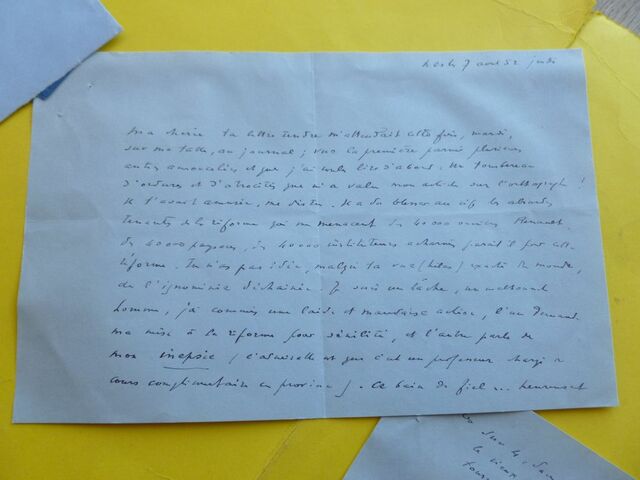 7 avril 52 jeudi
Ma chérie ta lettre tendre m'attendait cette fois, mardi,
sur ma table, au journal ; vue la première parmi plusieurs
autres amoncelées et que j'ai voulu lire d'abord. Un tombereau
d'ordures et d'atrocités que m'a valu mon article sur l'orthographe !
Il t'avait amusée, me dis-tu. Il a dû blesser au vif les
tenants de la réforme qui me menacent des 40 000 ouvriers Renault
des 40 000 paysans, des 40 000 instituteurs acharnés paraît-il pour cette
réforme. Tu n'as pas idée, malgré ta vue (hélas) exacte du monde,
de l'ignominie déchaînée. Je suis un lâche, un malhonnête
homme, j'ai commis une laide et mauvaise action, l'un demande
ma mise à la réforme pour sénilité, et l'autre parle de
mon inepsie (l'admirable est que c'est un professeur chargé de
cours complémentaire en province). Ce bain de fiel ... heureusement
sur le
le vieux